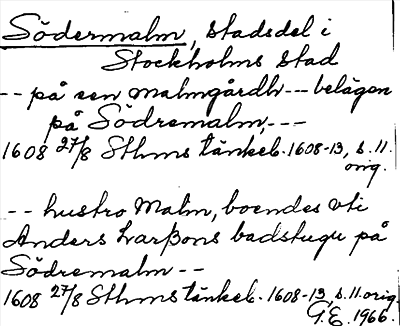 Södermalm, stadsdel i
Stockholms stad
-- på sen malmgårdh --- belägen
på Södremalm, ---
1608 27/8 Sthms tänkeb. 1608-13, s. 11.
orig.
-- hustro Malm, boendes vti
Anders Larßons badstugu på
Södremalm --
1608 27/8 Sthms tänkeb. 1608-13, s. 11. orig.
G.E. 1966.